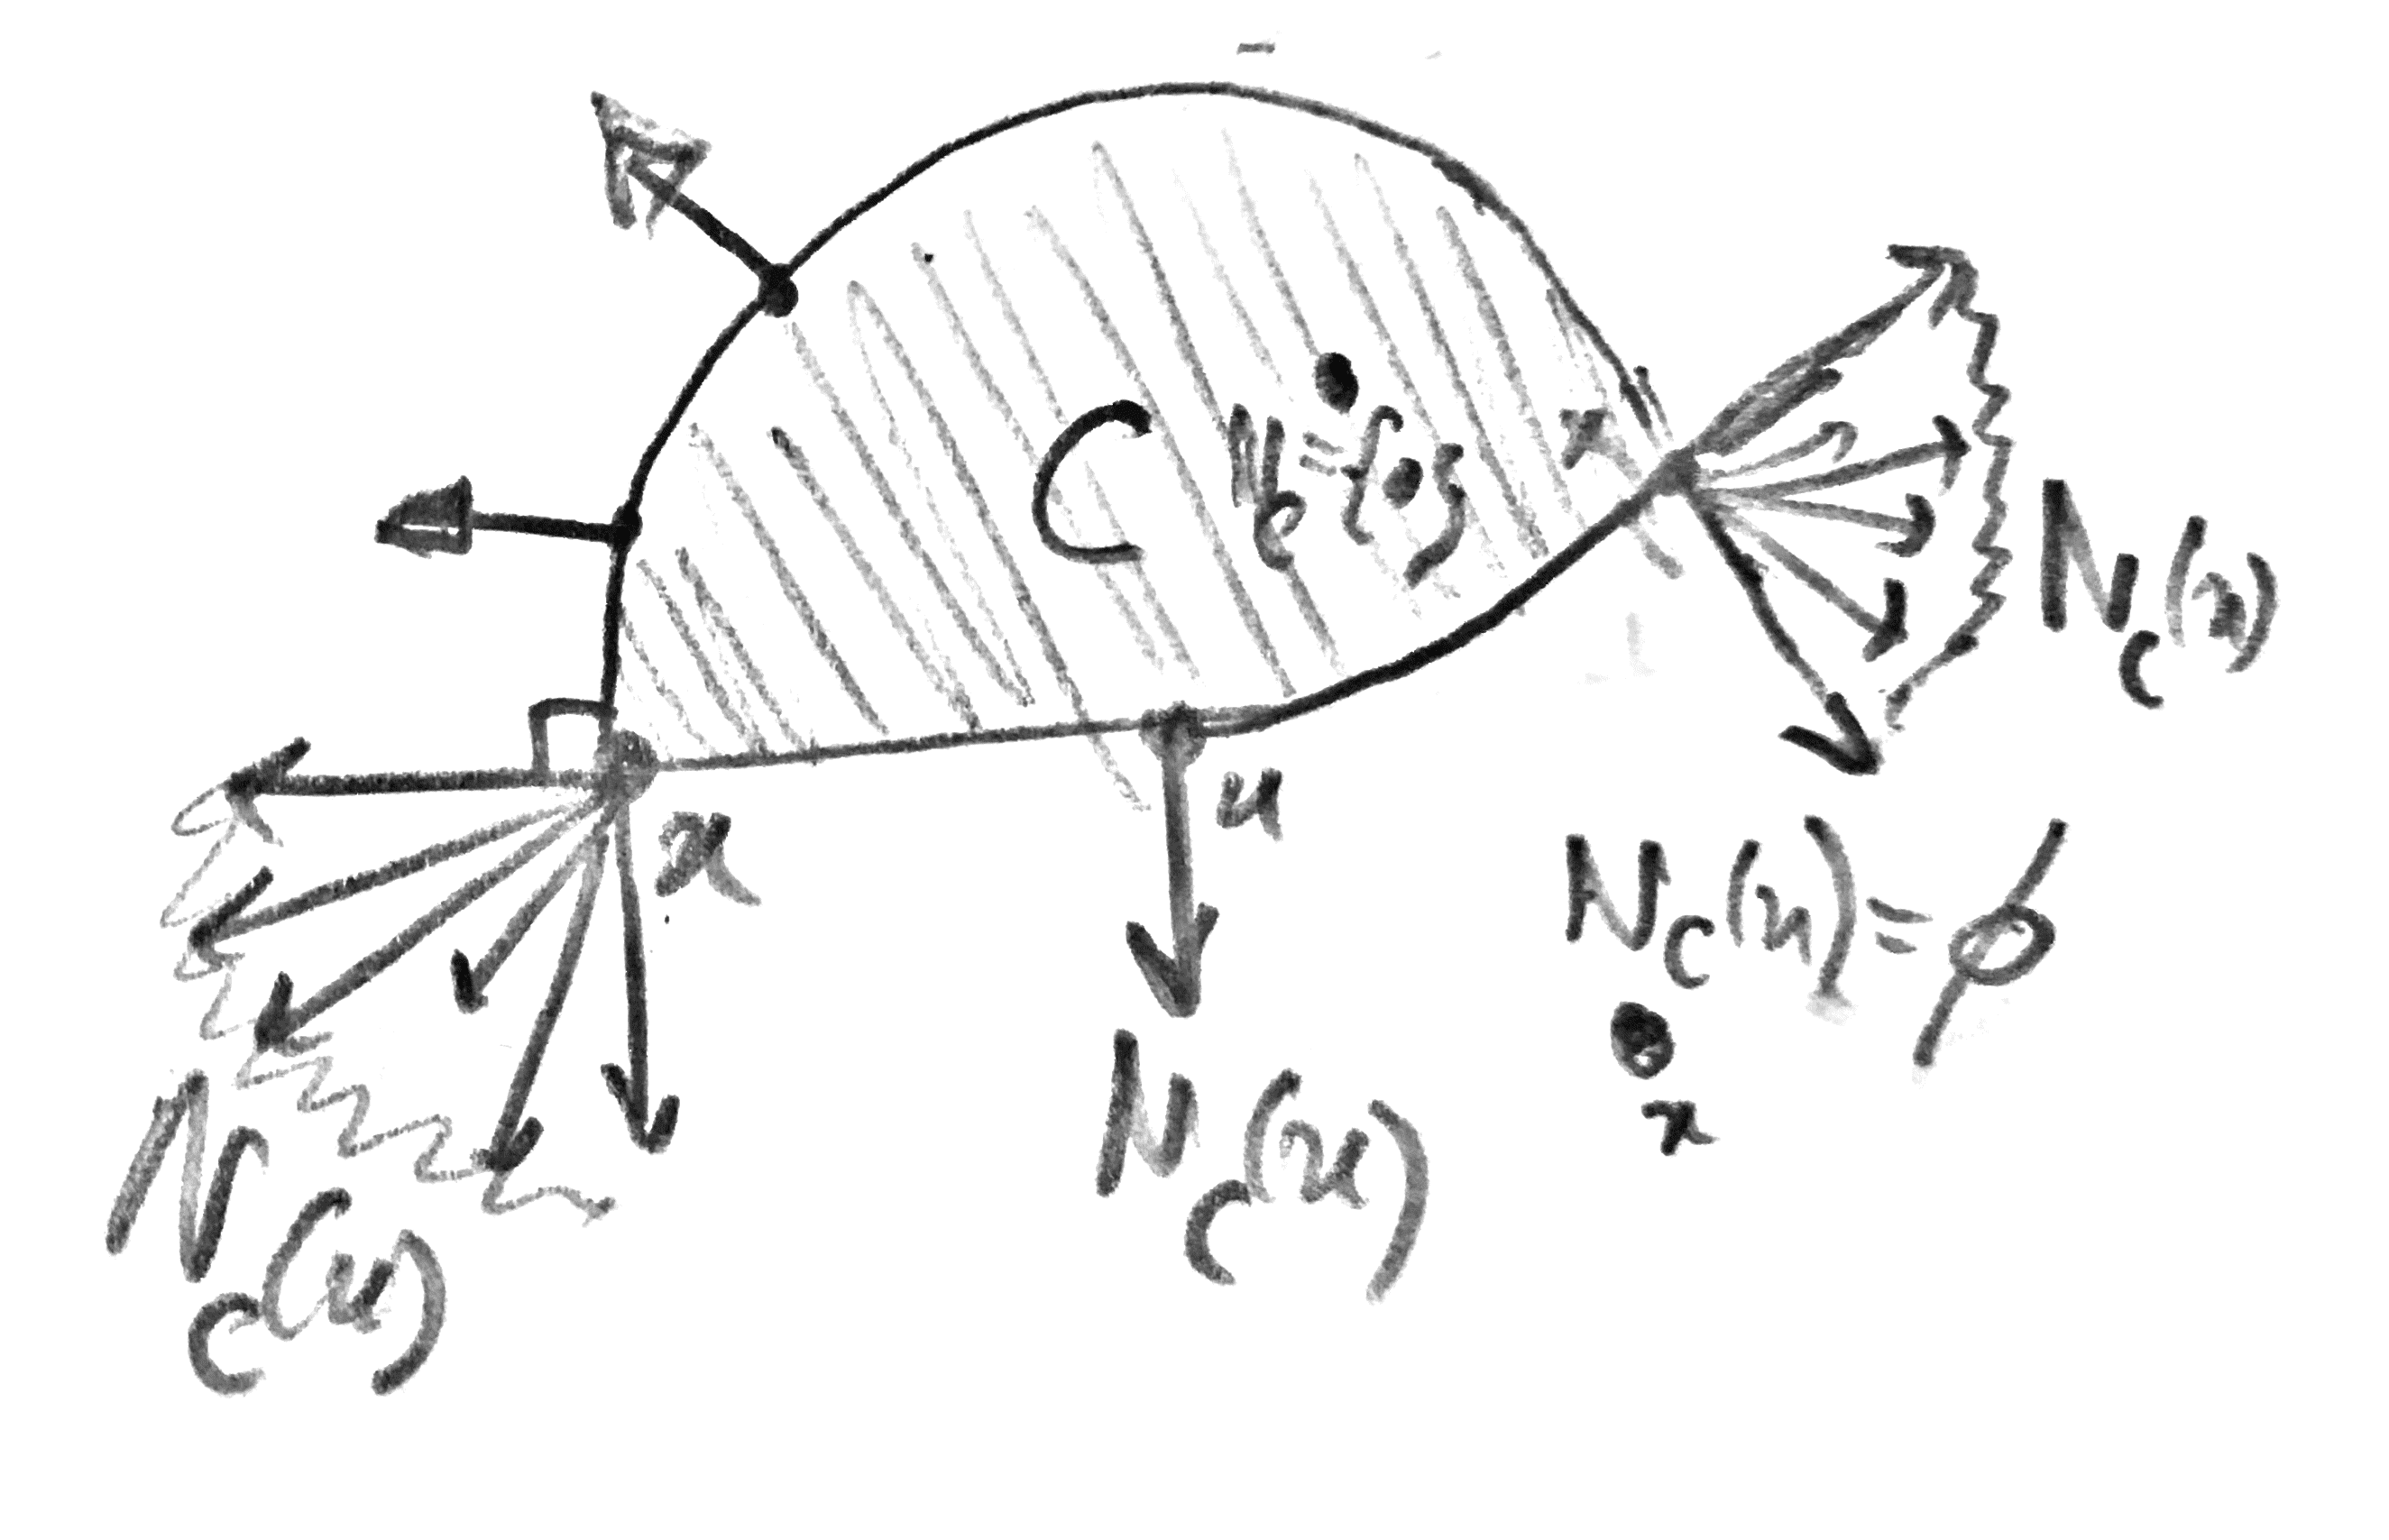 C
N_C = {0}
x
N_C(x)
x
x
N_C(x) = ϕ
x
N_C(x)
N_C(x)